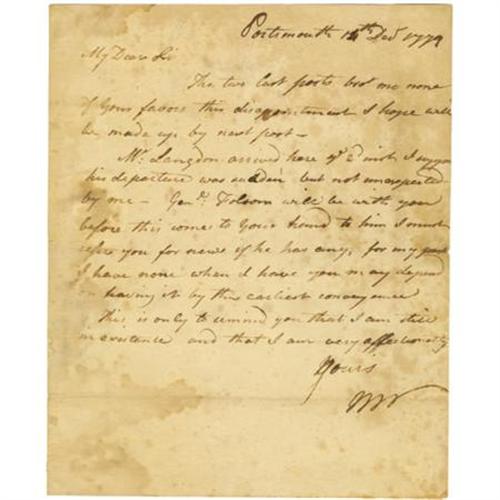 Portsmouth 14th Decr 1779
My Dear Sir
The two last posts brot me none
of your favors this disappointment I hope will
be made up by next post –
Mr. Langdon arrived here ye 2d inst. I suppose
his departure was sudden but not unexpected
by me – Genl. Folsom will be with you
before this comes to your hand to him I must
refer you for news if he has any, for my part
I have none when I have you may depend
on having it by the earliest conveyance
this is only to remind you that I am still
in existence and that I am very affectionately
Yours